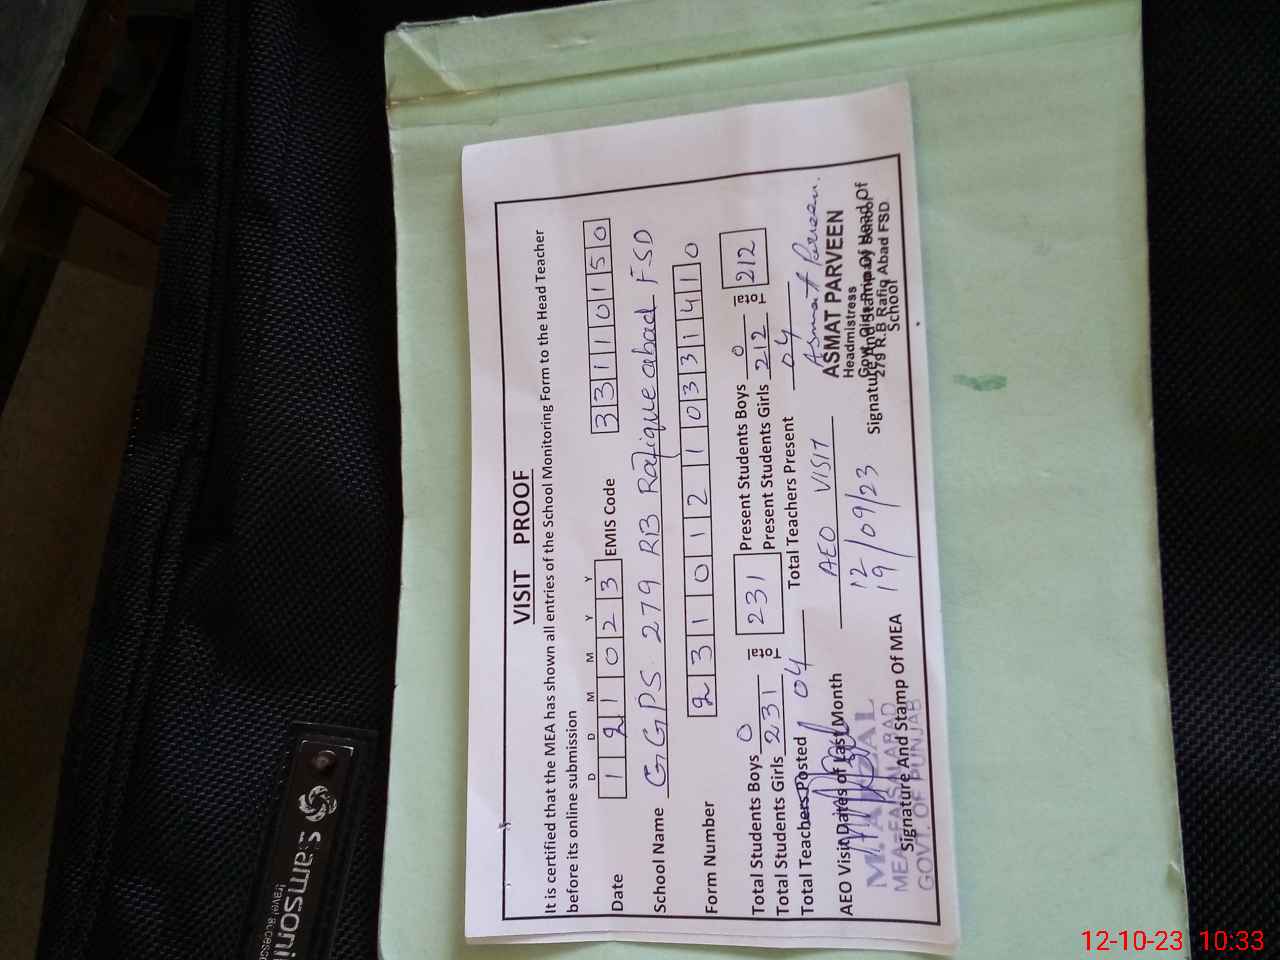 VISIT PROOF
It is certified that the MEA has shown all entries of the School Monitoring Form to the Head Teacher
before its online submission
D D M M Y Y
Date 1 2 1 0 2 3 EMIS Code 3 3 1 1 0 1 5 0
School Name GGPS 279 RB Rafique abad FSD
Form Number 2 3 1 0 1 2 1 0 3 3 1 4 1 0
Total Students Boys 0 Total 231 Present Students Boys 0 Total 212
Total Students Girls 231 Present Students Girls 212
Total Teachers Posted 04 Total Teachers Present 04
AEO Visit Dates of Last Month AEO VISIT
12/09/23
19
Asmat Parveen.
ASMAT PARVEEN
Headmistress
279 R.B Rafiq Abad FSD
Signature And Stamp Of Head Of
School
Signature And Stamp Of MEA
MEA-FAISALABAD
GOVT. OF PUNJAB
samsoni
travel access
12-10-23 10:33